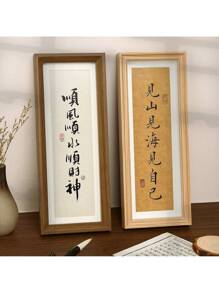 順風順水順財神
見山見海見自己